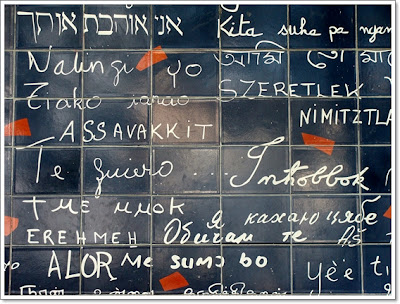 אני אוהבת אותך Kita suka pa ngan
Nalingi yo আমি
Tiako ianao SZERETLEK
NIMITZTLA
ASSAVAKKIT
Te quiero ... Inħobbok
Я кахаю цябе
EREHMEH Обичам те Aš
ALOR ME SUMO BO